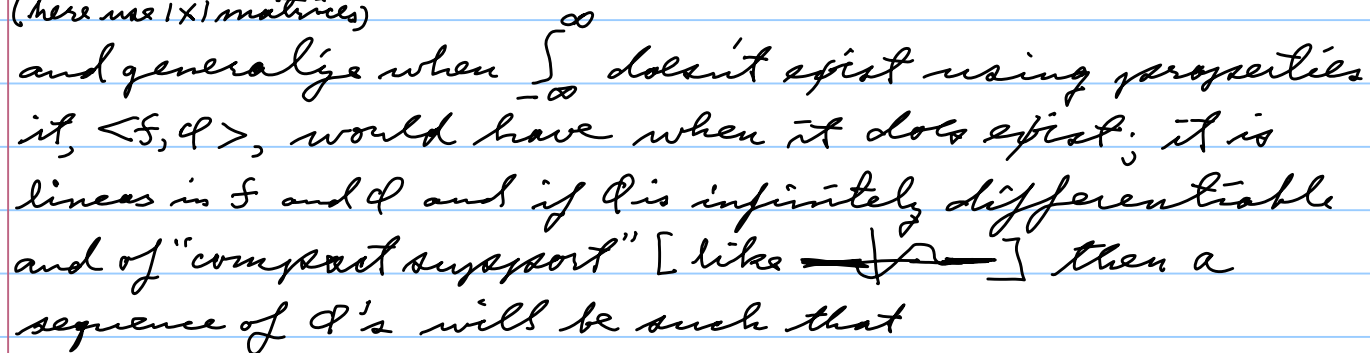 (here use 1×1 matrices)
and generalize when ∫_{-∞}^{∞} doesn't exist using properties
it, <f, φ>, would have when it does exist; it is
linear in f and φ and if φ is infinitely differentiable
and of "compact support" [like ] then a
sequence of φ's will be such that